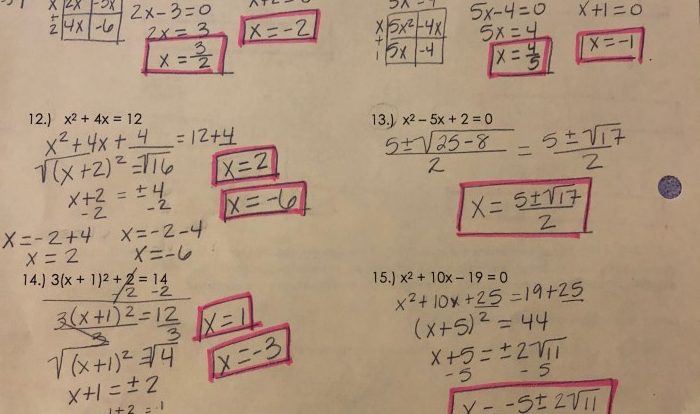 x 2x -3x
+
2 4x -6
2x-3=0
2x = 3
x = 3/2
x = -2
x 5x² -4x
+
1 5x -4
5x-4=0
5x = 4
x = 4/5
x+1=0
x = -1
12.) x² + 4x = 12
x² + 4x + 4 = 12+4
√(x+2)² = √16
x+2 = ±4
-2 -2
x = -2+4 x = -2-4
x = 2 x = -6
x = 2
x = -6
13.) x² – 5x + 2 = 0
5±√25-8 / 2 = 5±√17 / 2
x = 5±√17 / 2
14.) 3(x + 1)2 + 2 = 14
-2 -2
3(x+1)² = 12
3 3
√(x+1)² = √4
x+1 = ±2
x = 1
x = -3
15.) x² + 10x – 19 = 0
x² + 10x + 25 = 19+25
(x+5)² = 44
x+5 = ±2√11
-5 -5
x = -5±2√11